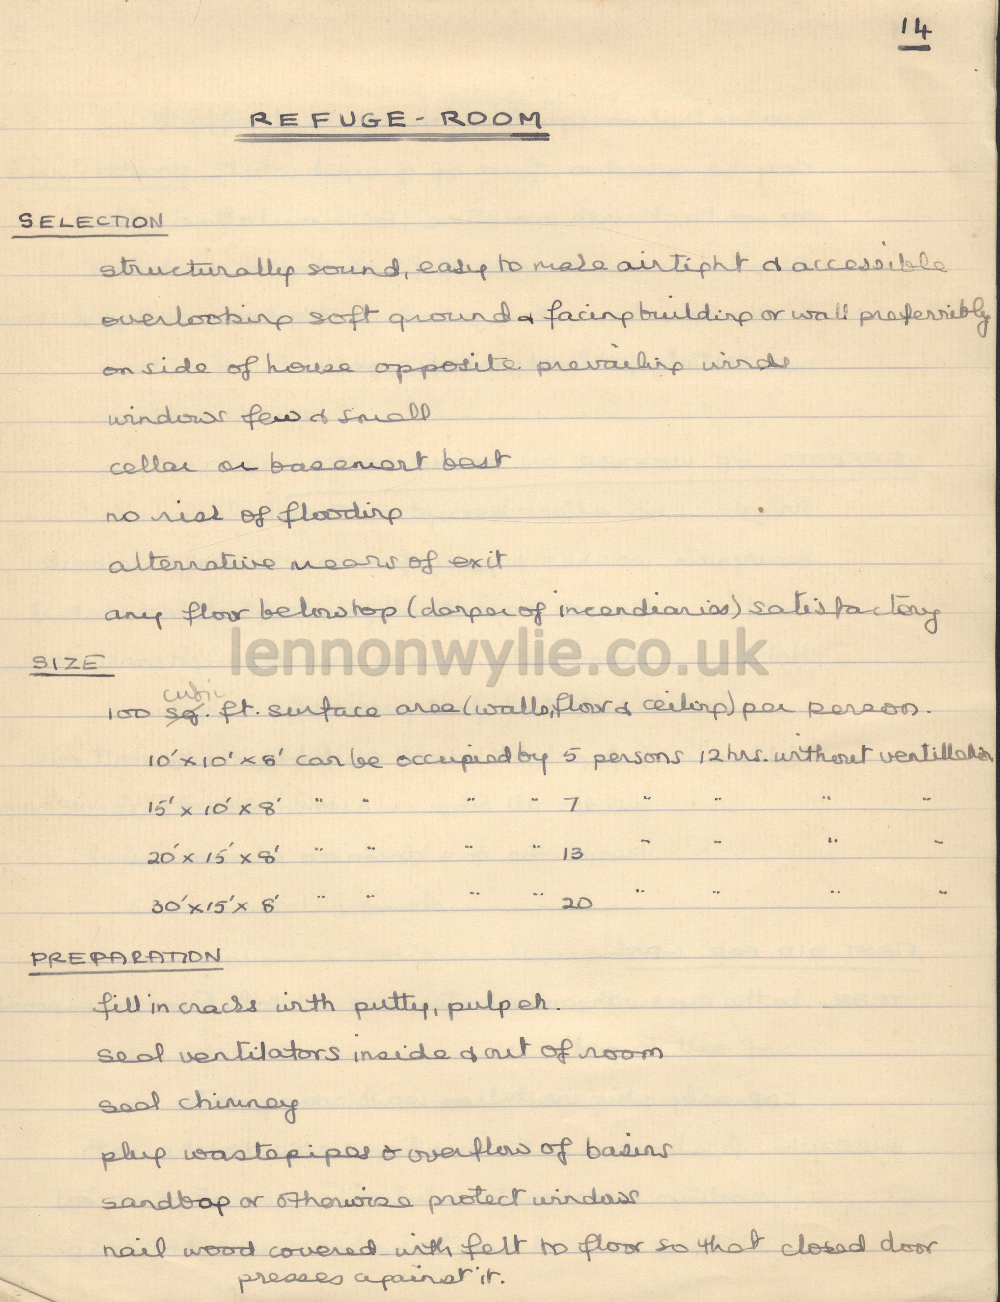 14
REFUGE-ROOM
SELECTION
structurally sound, easy to make airtight & accessible
overlooking soft ground & facing building or wall preferribly
on side of house opposite prevailing winds
windows few & small
cellar or basement best
no risk of flooding
alternative means of exit
any floor below top (danger of incendiaries) satisfactory
lennonwylie.co.uk
SIZE
cubic
100 sq. ft. surface area (walls, floor & ceiling) per person.
10' x 10' x 8' can be occupied by 5 persons 12 hrs. without ventillation
15' x 10' x 8' " " " " 7 " " " "
20' x 15' x 8' " " " " 13 " " " "
30' x 15' x 8' " " " " 20 " " " "
PREPARATION
fill in cracks with putty, pulp eh.
seal ventilators inside & out of room
seal chimney
plug wastepipes & overflow of basins
sandbag or otherwise protect window
nail wood covered with felt to floor so that closed door
presses against it.